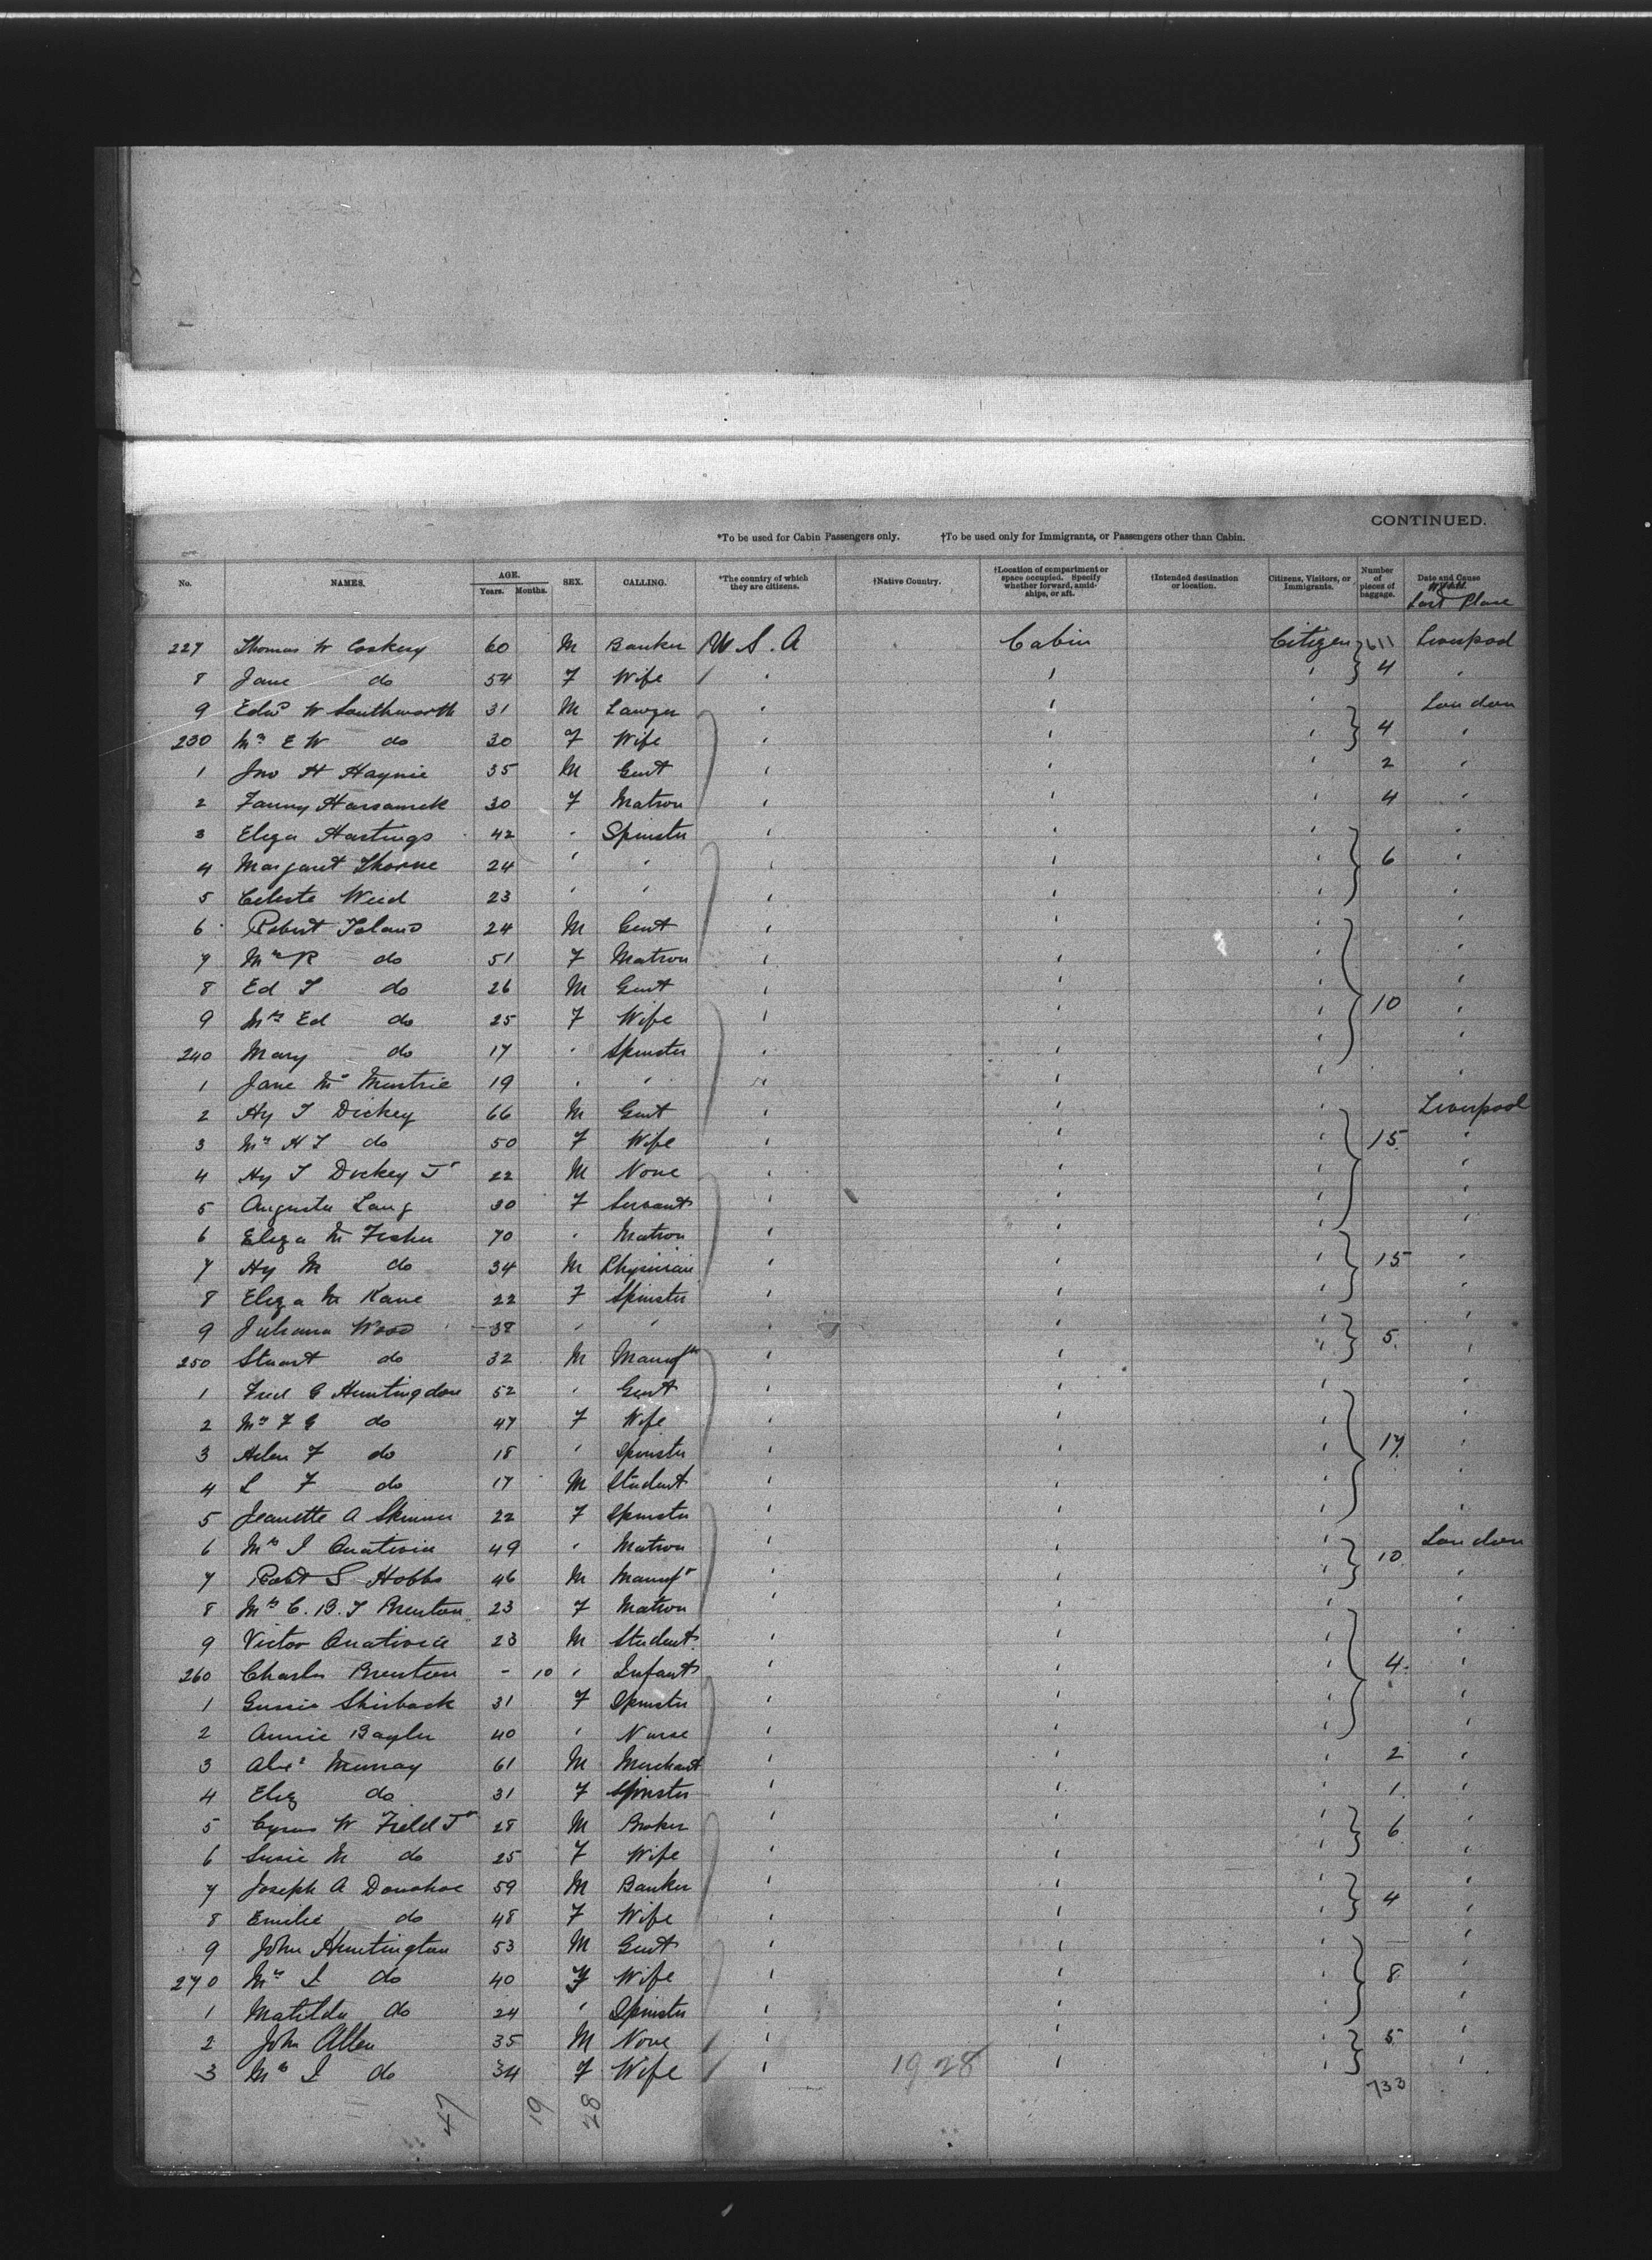 CONTINUED.
*To be used for Cabin Passengers only. †To be used only for Immigrants, or Passengers other than Cabin.
No. NAMES. AGE. Years. Months. SEX. CALLING. *The country of which they are citizens. †Native Country. †Location of compartment or space occupied. Specify whether forward, amid-ships, or aft. †Intended destination or location. Citizens, Visitors, or Immigrants. Number of pieces of baggage. Date and Cause
Last Place
227 Thomas W 60 M Banker U S. A Cabin Citizen 611 Liverpool
8 Jane do 54 F Wife ' ' ' 4 '
9 Edwd W Southworth 31 M Lawyer ' ' ' London
230 Mrs E W do 30 F Wife ' ' ' 4 '
1 Jno H Haynie 35 M Gent ' ' ' 2 '
2 Fanny 30 F Matron ' ' ' 4 '
3 Eliza Hastings 42 ' Spinster ' ' ' '
4 Margaret Thorne 24 ' ' ' ' ' 6 '
5 Celeste Weed 23 ' ' ' ' ' '
6 Robert 24 M Gent ' ' ' '
7 Mrs R do 51 F Matron ' ' ' '
8 Ed T do 26 M Gent ' ' ' '
9 Mrs Ed do 25 F Wife ' ' ' 10 '
240 Mary do 17 ' Spinster ' ' ' '
1 Jane Mc 19 ' ' ' ' ' '
2 Hy T Dickey 66 M Gent ' ' ' Liverpool
3 Mrs H T do 50 F Wife ' ' ' 15 '
4 Hy T Dickey Jr 22 M None ' ' ' '
5 Augusta Lang 30 F Servant ' ' ' '
6 Eliza M Fisher 70 ' Matron ' ' ' '
7 Hy M do 34 M Physician ' ' ' 15 '
8 Eliza M Kane 22 F Spinster ' ' ' '
9 Juliana Wood 38 ' ' ' ' ' '
250 Stuart do 32 M Manufr ' ' ' 5 '
1 Fred G Huntingdon 52 ' Gent ' ' ' '
2 Mrs F G do 47 F Wife ' ' ' '
3 Helen F do 18 ' Spinster ' ' ' 17 '
4 L F do 17 M Student ' ' ' '
5 Jeanette A Skinner 22 F Spinster ' ' ' '
6 Mrs J Onativia 49 ' Matron ' ' ' London
7 Robt S Hobbs 46 M Manufr ' ' ' 10 '
8 Mrs C. B. T Breuton 23 F Matron ' ' ' '
9 Victor Onativia 23 M Student ' ' ' '
260 Charles Breuton - 10 ' Infant ' ' ' 4 '
1 Gussie 31 F Spinster ' ' ' '
2 Annie Bayler 40 ' Nurse ' ' ' '
3 Alexr Murray 61 M Merchant ' ' ' 2 '
4 Eliz do 31 F Spinster ' ' ' 1 '
5 Cyrus W Field Jr 28 M Broker ' ' ' 6 '
6 Susie M do 25 F Wife ' ' ' '
7 Joseph A Donohoe 59 M Banker ' ' ' '
8 Emilie do 48 F Wife ' ' ' 4 '
9 John Huntington 53 M Gent ' ' ' '
270 Mrs J do 40 F Wife ' ' ' 8 '
1 Matilda do 24 ' Spinster ' ' ' '
2 John Allen 35 M None ' ' ' 5 '
3 Mrs J do 34 F Wife ' ' ' '
1928
733
47 19 28